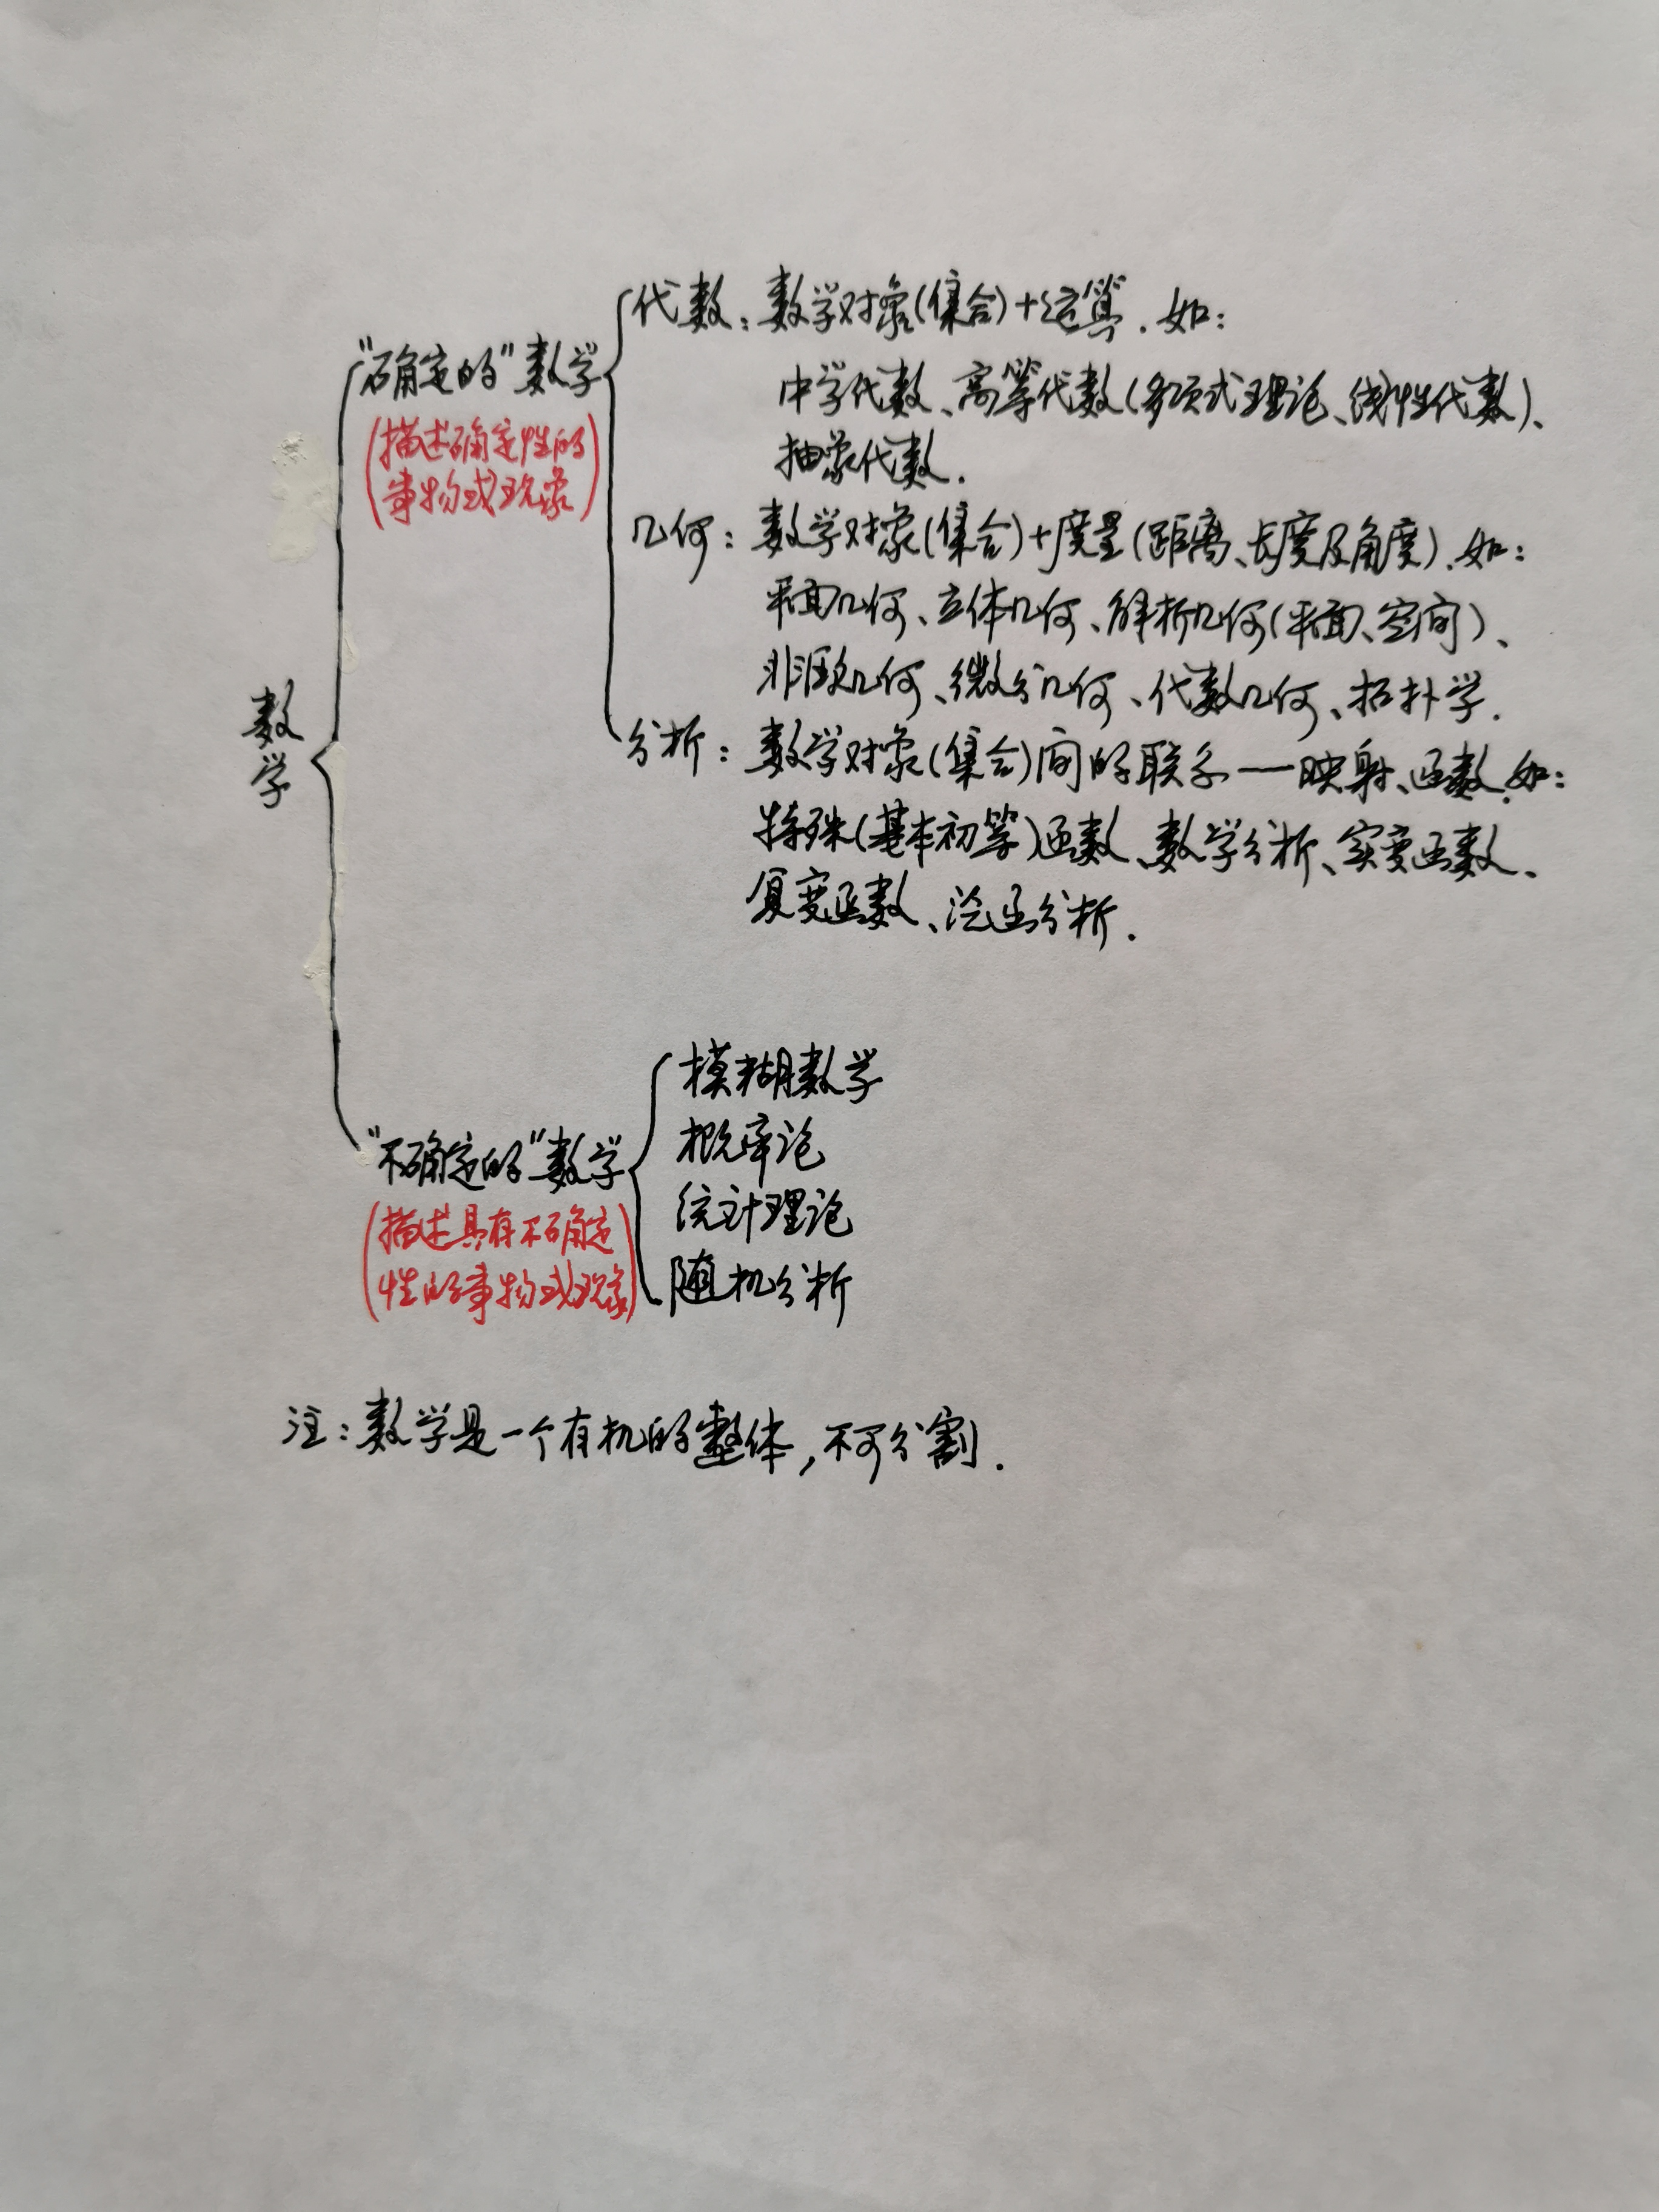 数学
"确定的"数学
(描述确定性的
事物或现象)
代数：数学对象(集合)+运算．如：
中学代数、高等代数(多项式理论、线性代数)、
抽象代数．
几何：数学对象(集合)+度量(距离、长度及角度)．如：
平面几何、立体几何、解析几何(平面、空间)、
非欧几何、微分几何、代数几何、拓扑学．
分析：数学对象(集合)间的联系——映射、函数．如：
特殊(基本初等)函数、数学分析、实变函数、
复变函数、泛函分析．
"不确定的"数学
(描述具有不确定
性的事物或现象)
模糊数学
概率论
统计理论
随机分析
注：数学是一个有机的整体，不可分割．